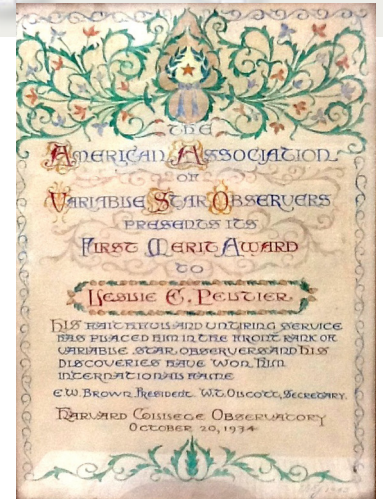 THE
AMERICAN ASSOCIATION
OF
VARIABLE STAR OBSERVERS
PRESENTS ITS
FIRST MERIT AWARD
TO
LESLIE C. PELTIER
HIS FAITHFUL AND UNTIRING SERVICE
HAS PLACED HIM IN THE FRONT RANK OF
VARIABLE STAR OBSERVERS AND HIS
DISCOVERIES HAVE WON HIM
INTERNATIONAL FAME
E.W. BROWN, PRESIDENT W.T. OLCOTT, SECRETARY.
HARVARD COLLEGE OBSERVATORY
OCTOBER 20, 1934